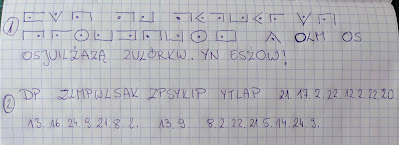 ①
OLM OS
OSJUILŻAZĄ ZULÓRKW. YN ESZÓW!
② DP ZLMPWLSAK ZPSYKIP YTLAP 21. 17. 2. 22. 12. 2. 22. 20.
13. 16. 24. 9. 21. 8. 2. 13. 9. 8. 2. 22. 21. 5. 14. 24. 9.